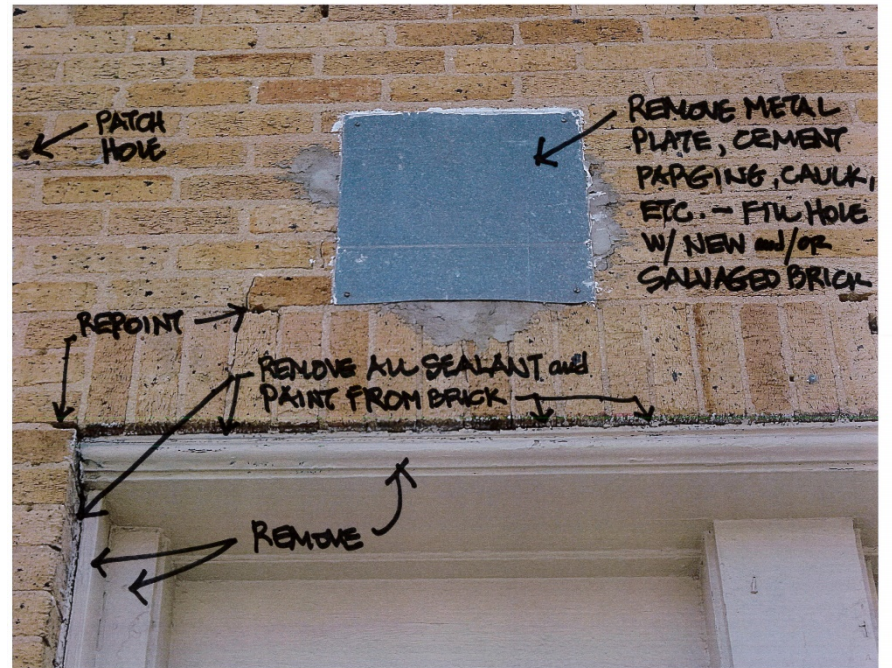 PATCH
HOLE
REMOVE METAL
PLATE, CEMENT
PARGING, CAULK,
ETC. - FILL HOLE
W/ NEW and/or
SALVAGED BRICK
REPOINT
REMOVE ALL SEALANT and
PAINT FROM BRICK
REMOVE